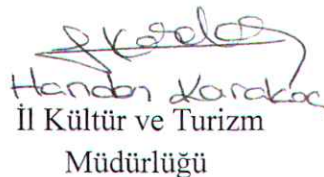 Handan Karakoç
İl Kültür ve Turizm
Müdürlüğü